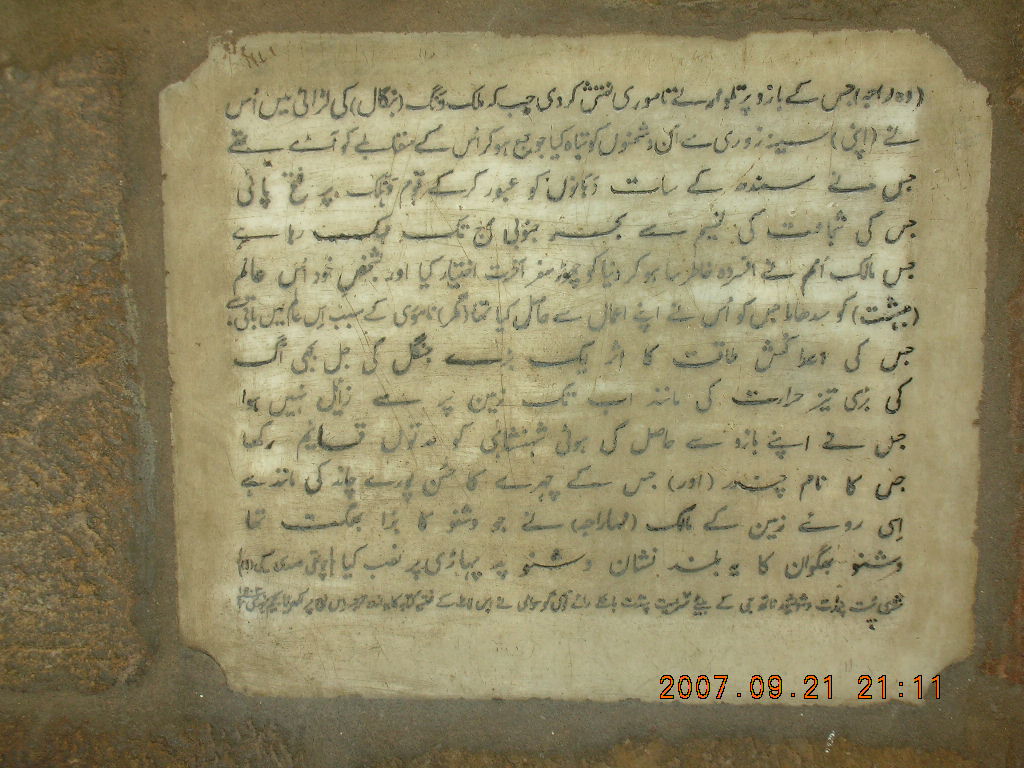 (وہ راجہ) جس کے بازو پر تلوار نے ناموری نقش کر دی جب کہ ملک ونگ (بنگال) کی لڑائی میں اُس
نے (اپنی) سینہ زوری سے اُن دشمنوں کو تباہ کیا جو جمع ہو کر اُس کے مقابلے کو آئے تھے
جس نے سندھ کے سات دہانوں کو عبور کر کے قوم پر فتح پائی
جس کی شجاعت کی نسیم سے بحر جنوبی آج تک مہک رہا ہے
جس مالک اُمم نے افسردہ خاطر سا ہو کر دنیا کو چھوڑ سفر آخرت اختیار کیا اور بہ نفس خود اُس عالم
(بہشت) کو سدھارا جس کو اُس نے اپنے اعمال سے حاصل کیا تھا (مگر) ناموری کے سبب اِس عالم میں باقی ہے
جس کی اعدا کُش طاقت کا اثر ایک بڑے جنگل کی جل بجھی آگ
کی بڑی تیز حرارت کی مانند اب تک زمین پر سے زائل نہیں ہوا
جس نے اپنے بازو سے حاصل کی ہوئی شہنشاہی کو مدتوں قائم رکھا
جس کا نام چندر (اور) جس کے چہرے کا حُسن پورے چاند کی مانند ہے
اِسی روئے زمین کے مالک (مہاراجہ) نے جو وشنو کا بڑا بھگت تھا
وشنو بھگوان کا یہ بلند نشان وشنو پد پہاڑی پر نصب کیا (چوتھی صدی
پنڈت کے بیٹے پنڈت نے اِس کے
2007.09.21 21:11